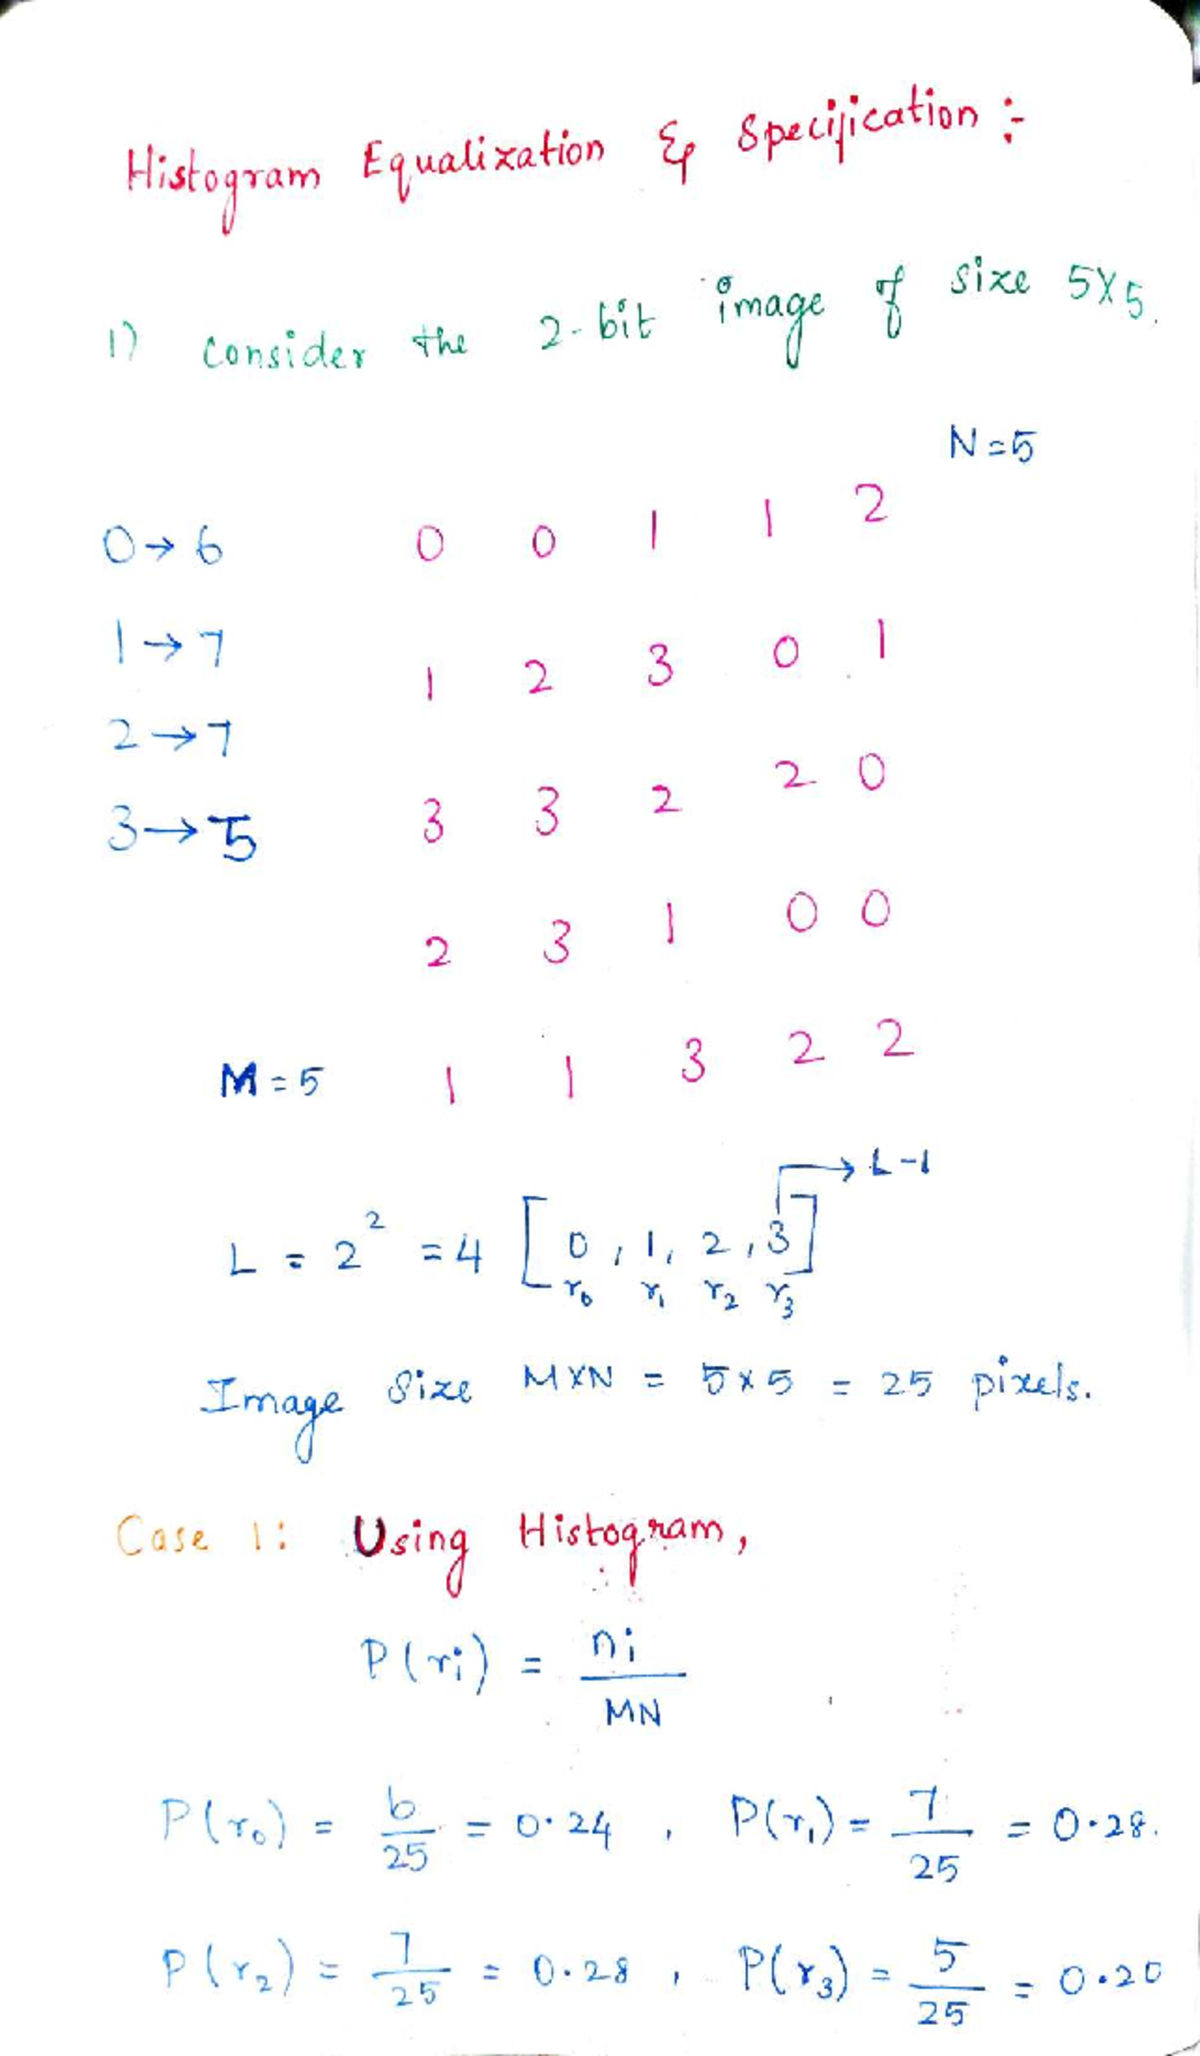 Histogram Equalization & Specification :-
1) consider the 2-bit image of size 5X5.
N=5
0→6 0 0 1 1 2
1→7 1 2 3 0 1
2→7
3→5 3 3 2 2 0
2 3 1 0 0
M=5 1 1 3 2 2
→ L-1
L = 2² = 4 [0, 1, 2, 3]
r₀ r₁ r₂ r₃
Image Size MXN = 5x5 = 25 pixels.
Case 1: Using Histogram,
P(ri) = ni / MN
P(r₀) = 6/25 = 0.24, P(r₁) = 7/25 = 0.28.
P(r₂) = 7/25 = 0.28, P(r₃) = 5/25 = 0.20